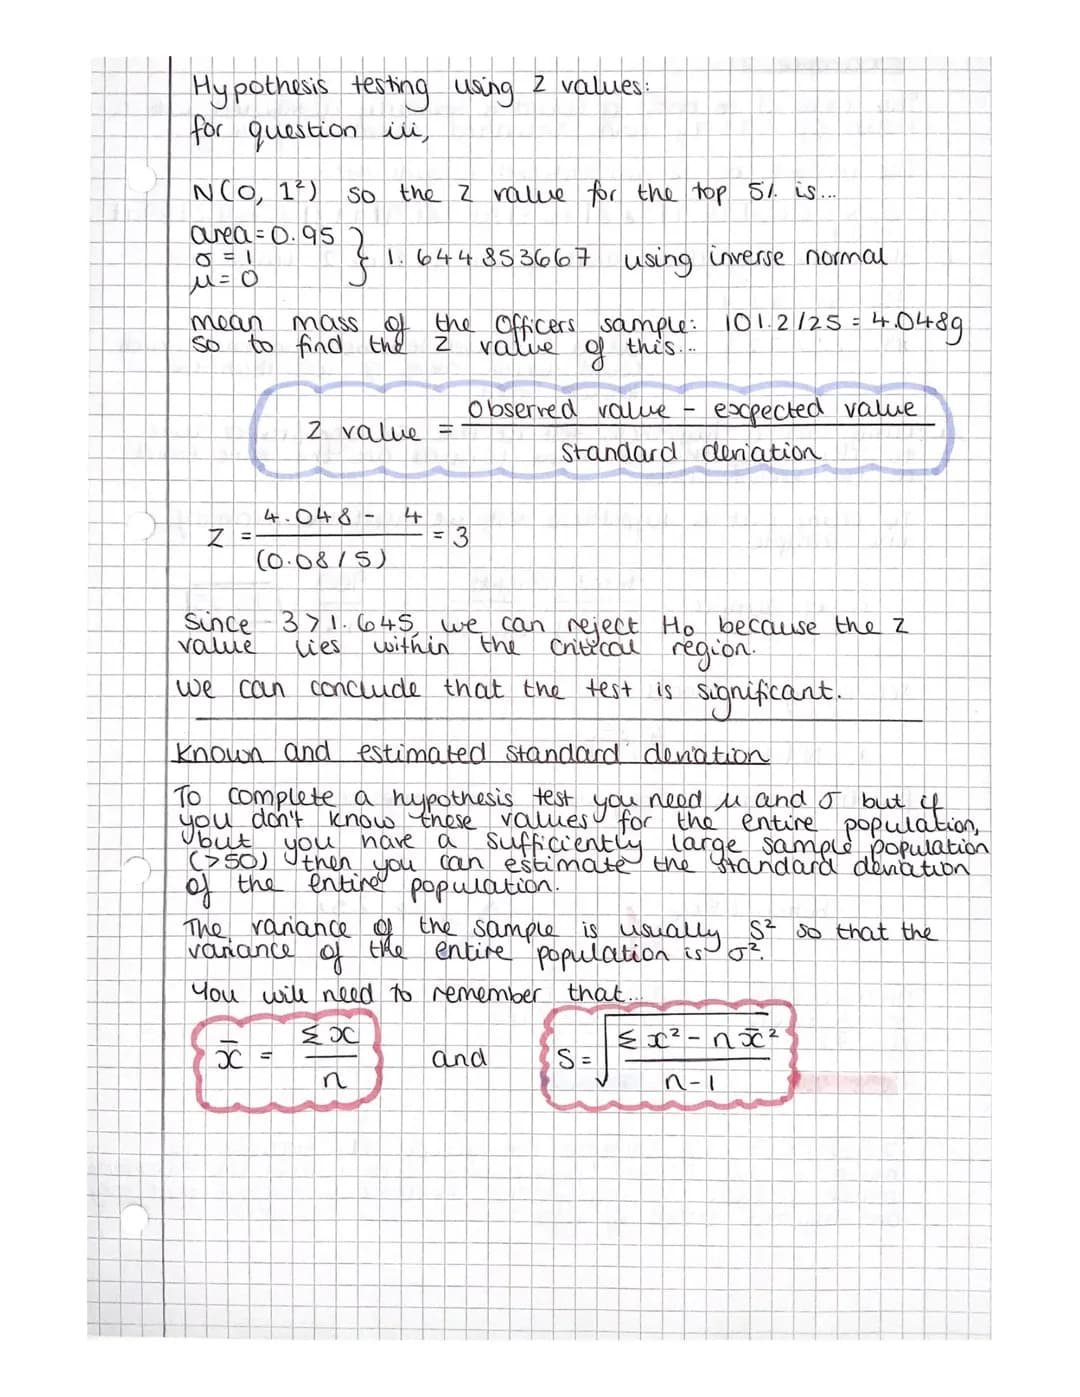 Hypothesis testing using Z values:
for question iii,
N(0, 1²) so the Z value for the top 5% is...
area=0.95
σ = 1
μ = 0
} 1.644853667 using inverse normal
mean mass of the Officers sample: 101.2/25 = 4.048g
so to find the Z value of this...
Z value = Observed value - expected value / standard deviation
Z = 4.048 - 4 / (0.08/5) = 3
Since 3>1.645 we can reject H₀ because the Z
value lies within the critical region.
We can conclude that the test is significant.
Known and estimated standard deviation
To complete a hypothesis test you need μ and σ but if
you don't know these values for the entire population,
but you have a sufficiently large sample population
(>50) then you can estimate the standard deviation
of the entire population.
The variance of the sample is usually S² so that the
variance of the entire population is σ².
You will need to remember that...
x̄ = Σx / n and S = √(Σx² - nx̄² / n-1)